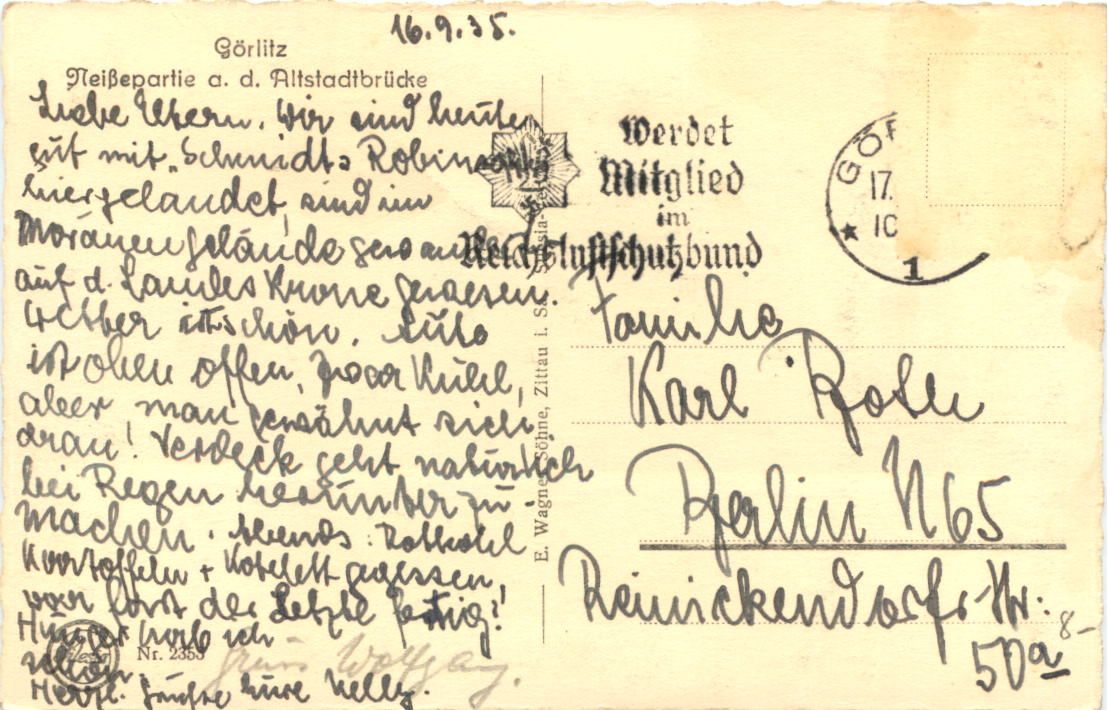 16.9.35.
Görlitz
Neißepartie a. d. Altstadtbrücke
Liebe Eltern. Wir sind heute
gut mit „Schmidts
hier gelandet, sind im
Moränengelände
auf d. Landeskrone gewesen.
Wetter ist schön. Auto
ist oben offen, zwar kühl,
aber man gewöhnt sich
dran! Verdeck geht natürlich
bei Regen herunter zu
machen. Abends: Rotkohl
Kartoffeln + Kotelett gegessen,
war fast der Letzte fertig!
Hunger hab ich
schon
Herzl. Grüße Eure Nelly.
Gruss Wolfgang.
Nr. 2353
E. Wagner Söhne, Zittau i. Sa.
Werdet
Mitglied
im
Reichsluftschutzbund
GÖR
17.
10
* 1
Familie
Karl Roth
Berlin N 65
Reinickendorfer Str.
50a
8-